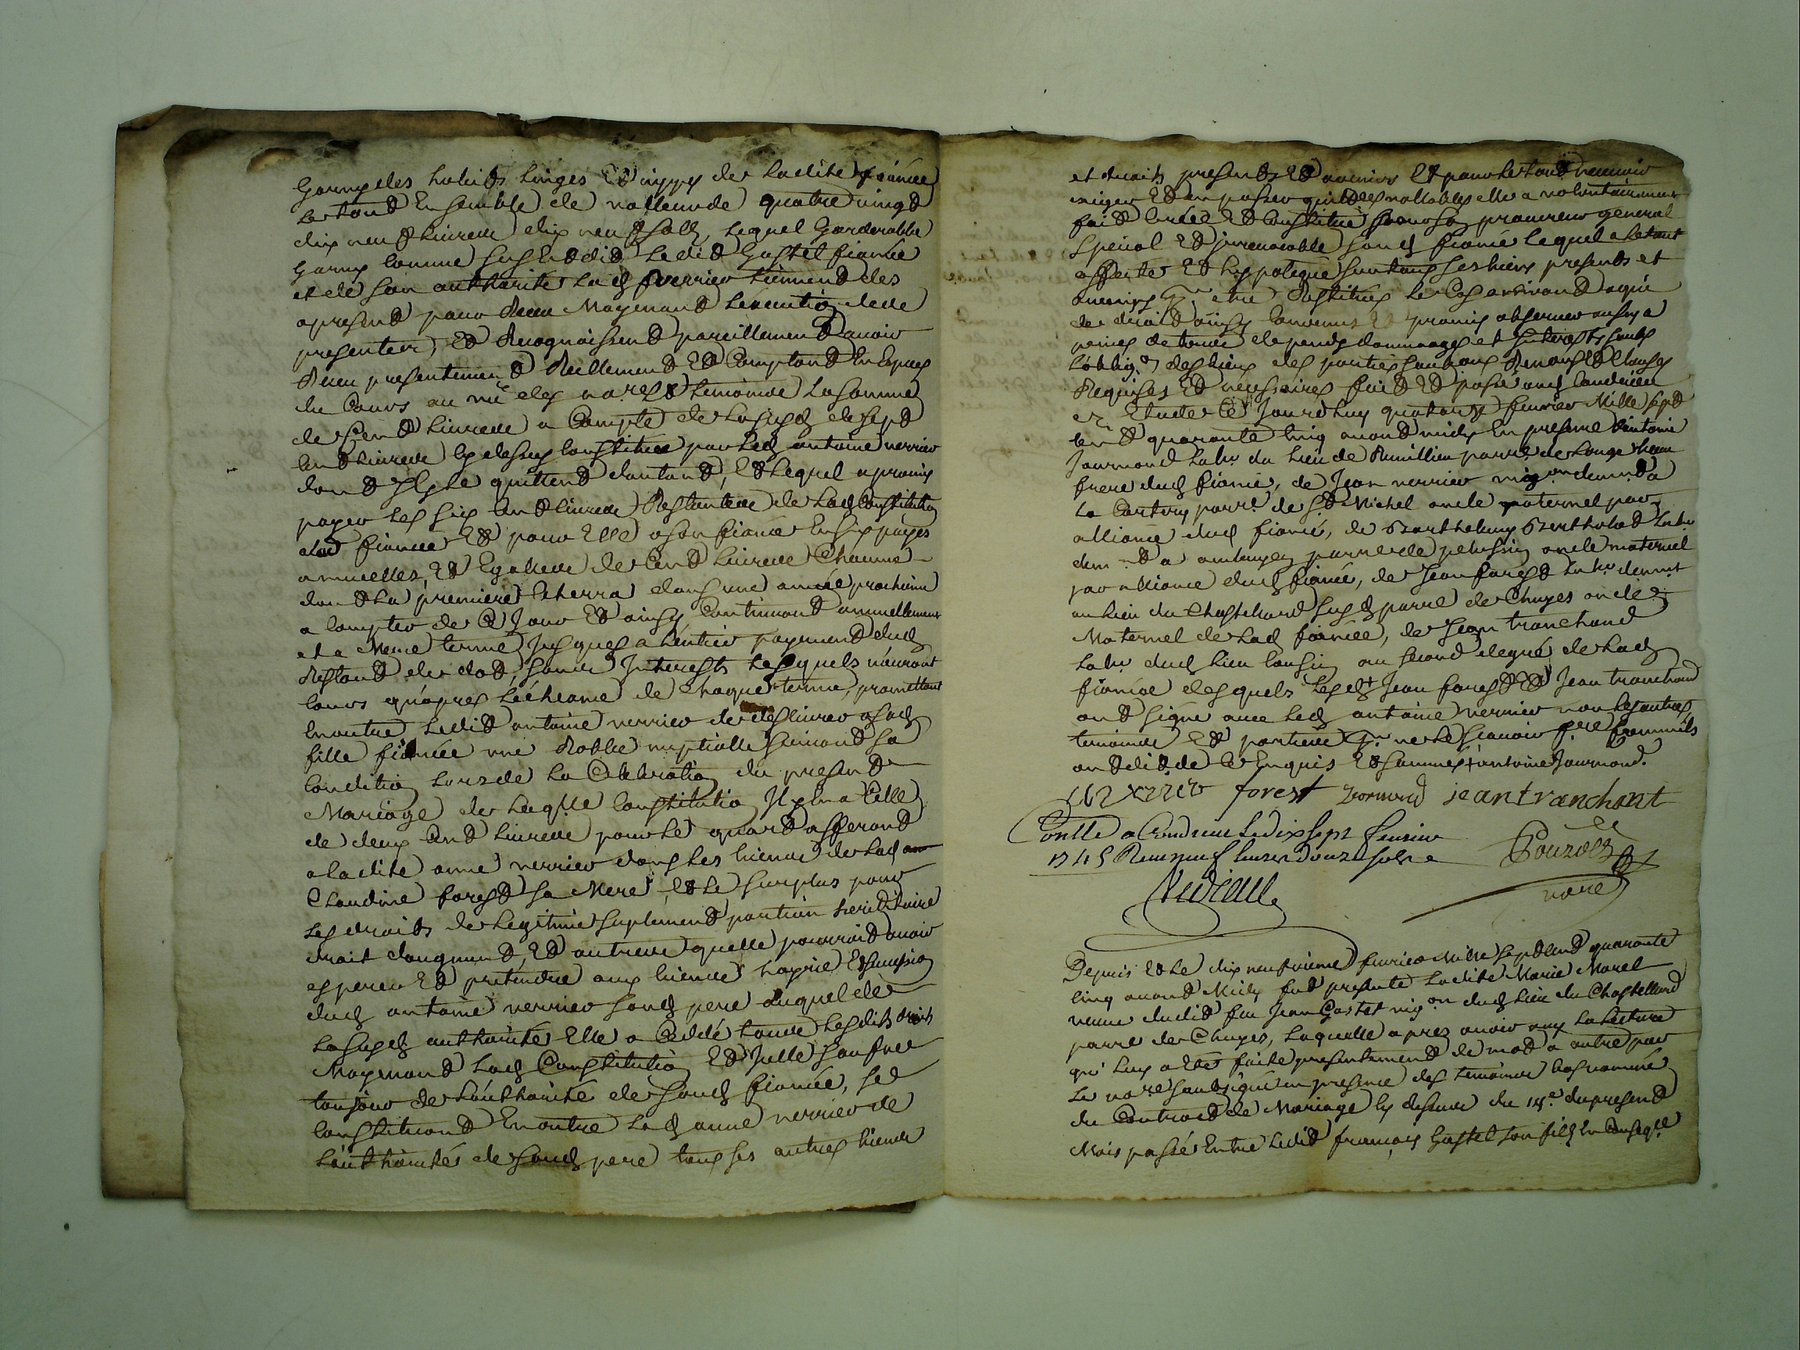 Garny des habits linges Et nippes de ladite fiancée
Le tout Ensemble de valleur de quatre vingt
dix neuf livres dix neuf sols, Lequel Garderobbe
Garny comme susEt dit Ledit Gastel fiancé
et de son authorité lad verrier tiennent des
apresent pour Receu Moyenant Lexecution de ce
presentes, Et Recognoissent pareillement avoir
Receu presentement Reellement Et Comptant En Especes
du Cours au veu des no.re Et temoins La somme
de Cent livres a Compte de la susd de sept
Cent livres cy dessus constituée par led antoine verrier
dont Ils le quittent d'autant, Et Lequel a promis
payer les six Cent livres Restantes de lad Constitution
a lad fiancée Et pour Elle a son fiancé En six payes
annuelles, Et Egalles de Cent livres Chacune
dont la premiere Echerra dans une année prochaine
a compter de Ce Jour Et ainsy Continuant annuellement
et a Meme terme Jusques a L'entier payement dud
Restant de dot, sans Interests lesquels n'auront
cours qu'apres L'écheance de chaque terme, promettant
En outre Ledit antoine verrier de deslivrer a sad
fille fiancée une Robbe nuptialle suivant sa
Condition Lors de la Celebration du present
Mariage de laq.lle Constitution Il y en a Celle
de deux Cent livres pour le quart afferant
a ladite anne verrier dans les biens de lad
Claudine forest sa Mere Et le surplus pour
Les droits de Legitime suplement portion hereditaire
droit d'augment, Et autres quelle pourroit avoir
esperer Et pretendre aux biens hoyrie Et succession
dud antoine verrier sond pere duquel de
La susd authorité Elle a Ceddé tous Lesdits droits
Moyenant lad Constitution Et Icelle soufrée
toujour de L'authorité de sond fiancé, se
constituant En outre Lad anne verrier de
L'authorité de sond pere tous ses autres biens
et droits presents Et avenir Et pour le tout recevoir
exiger Et en passer quittes vallables elle a volontairement
fait Créé Et Constitué pour son procureur general
special Et irrevocable sond fiancé lequel a le tout
affecté Et hypotequé sur tous ses biens presents et
avenir p.r etre Restitués le Cas arrivant a qui
de droit ainsy Convenus Et promis observer ausy a
peines de tous depends dommages et Interests sous
L'oblig.on des biens des parties sous tous Renons Et Clauses
Requises Et necessaires fait Et passé aud Condrieu
En Etude Ce Jourdhuy quatorze fevrier Mille sept
Cent quarante Cinq avant midy En presence d'antoine
Journoud Lab.r du Lieu de Rumillieu parr.e de Longe
frere dud fiancé, de Jean verrier vig.on demeur.t a
La Cartery parr.e de S.t Michel oncle paternel par
alliance dud fiancé, de Barthelemy Bertholat Lab.r
dem.t a parr.e de pelussin oncle maternel
par alliance dud fiancé, de Jean forest Lab.r demeur.t
au lieu du Chastelard susd parr.e de Chuyes oncle
Maternel de lad fiancée, de Jean tranchand
Lab.r dud lieu cousin au second degré de lad
fiancée desquels lesd Jean forest Et Jean tranchand
ont signé avec led antoine verrier non les autres
temoins Et parties p.r ne le sçavoir p.r ce
ont dit de Ce Enquis Et sommés antoine Journoud.
verrier forest Jornoud jean tranchant
Con.llé a Condrieu Le dix sept fevrier
1745 Receu neuf livres douze sols
Pouzols
no.re
Depuis Et Le dix neufvieme fevrier Mille sept Cent quarante
Cinq avant Midy fut presente Ladite Marie Morel
veuve dudit feu Jean Gastel vig.on dud lieu du Chastellard
parr.e de Chuyes, Laquelle apres avoir ouy la lecture
qui luy a Eté faite presentement de mot a autre par
Le no.re soubsigné en presence des temoins bas nommés
du Contract de Mariage cy dessus du 14.e du present
Mois passé Entre Ledit françois Gastel son fils En